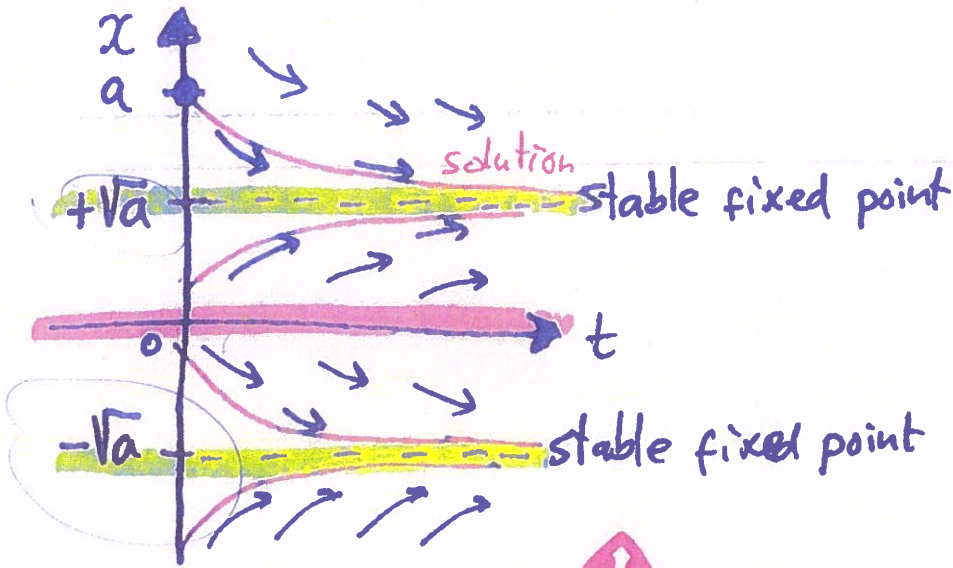 x
a
solution
+√a stable fixed point
t
0
-√a stable fixed point